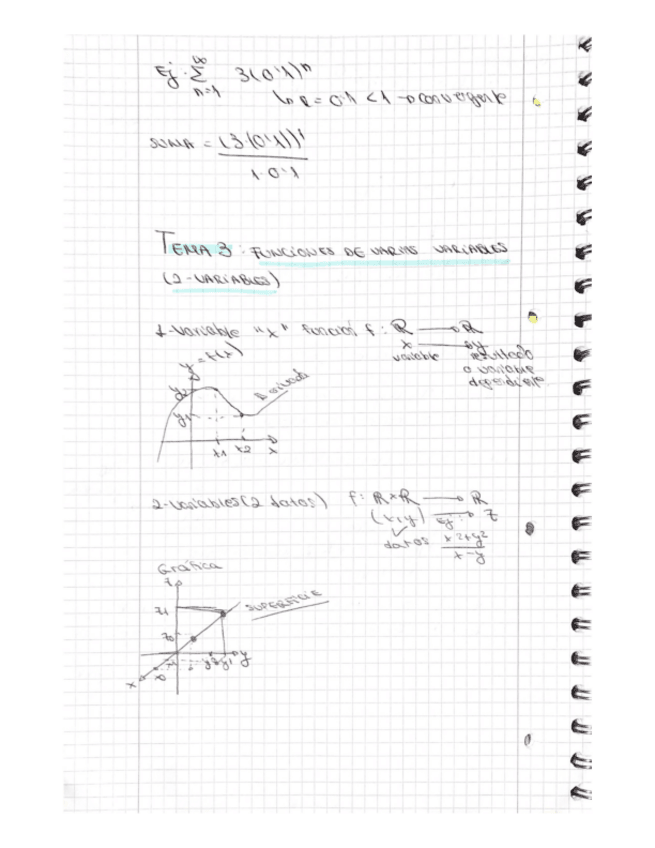 Ej: ∞
Σ 3(0'1)ⁿ
n=1
↳ R = 0'1 < 1 → convergente
SUMA = (3·(0'1))¹
1-0'1
TEMA 3: FUNCIONES DE VARIAS VARIABLES
(2-VARIABLES)
1-Variable "x" función f: ℝ → ℝ
x → y
variable resultado
o variable
dependiente
y = f(x)
y2
y1
x1 x2 x
2-Variables (2 datos) f: ℝ×ℝ → ℝ
(x,y) Ej: → z
datos x²+y²
x-y
Gráfica
z
z1 SUPERFICIE
z0
y1 y
x